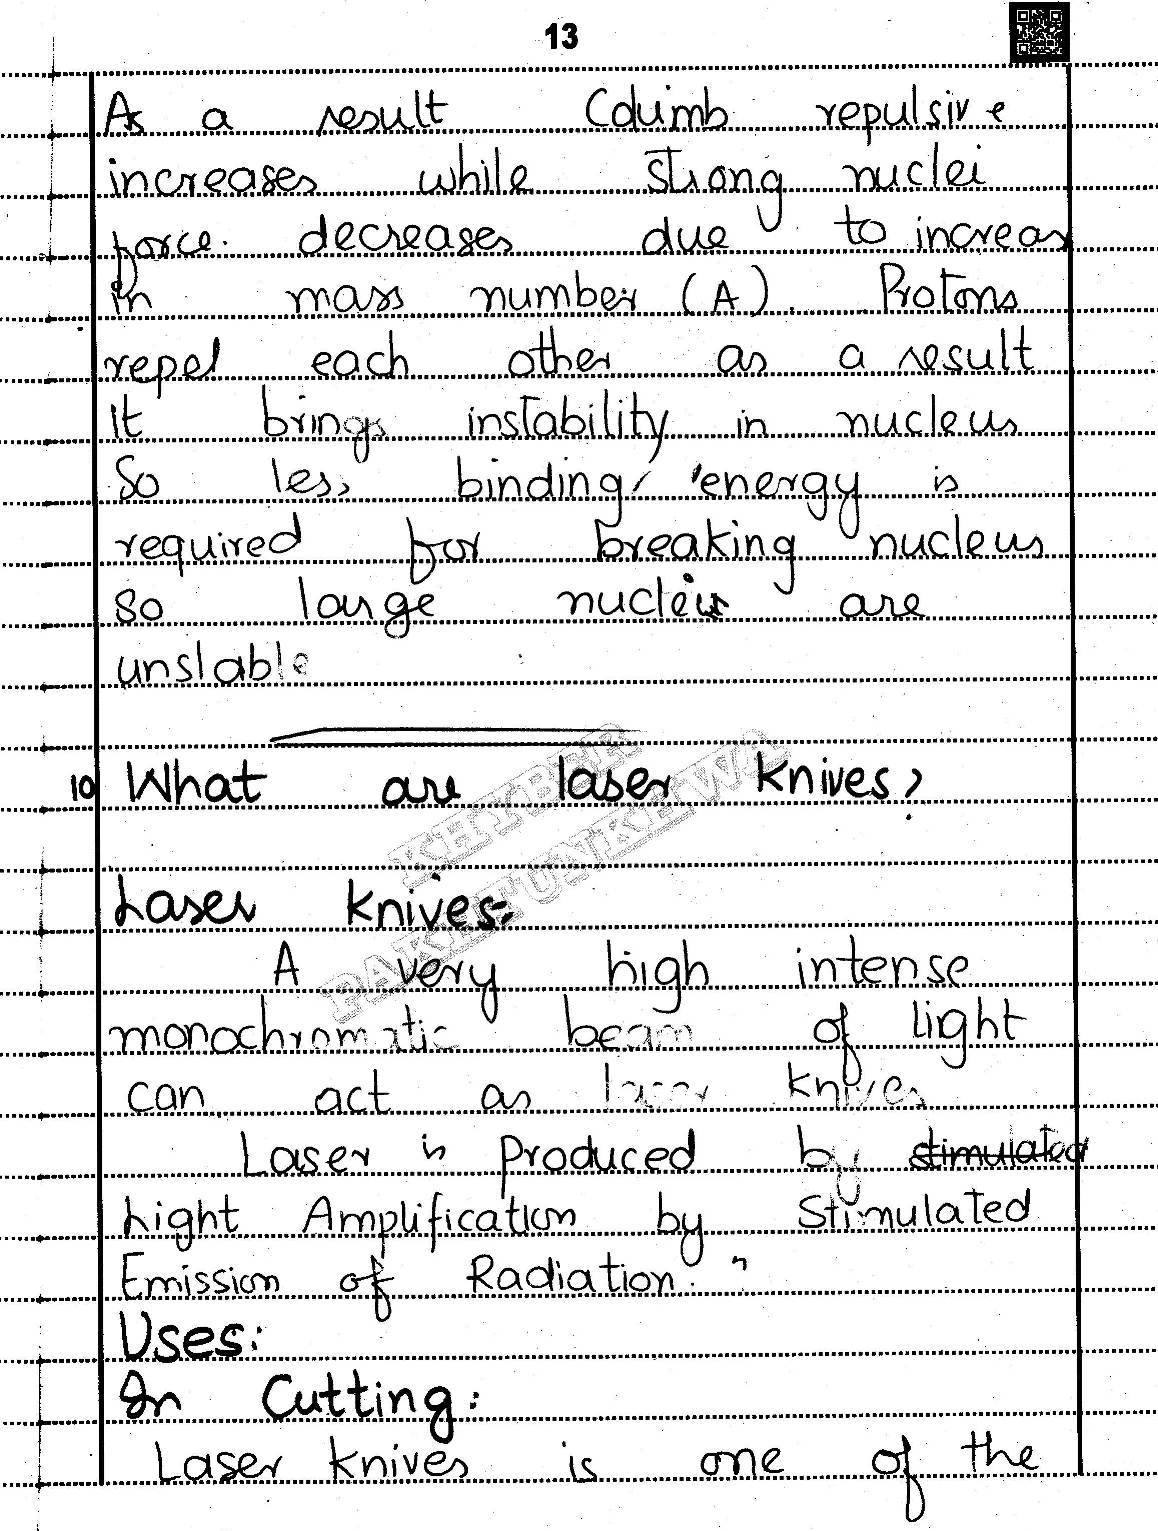 13
As a result Columb repulsive
increases while strong nuclei
force. decreases due to increas
in mass number (A). Protons
repel each other as a result
it brings instability in nucleus
So less binding energy is
required for breaking nucleus
so large nucleis are
unslable
10 What are laser knives?
KHYBER
PAKHTUNKHWA
Laser knives:-
A very high intense
monochromatic beam of light
can act as laser knives
Laser is produced by stimulated
Light Amplification by Stimulated
Emission of Radiation."
Uses:
In Cutting:
Laser knives is one of the